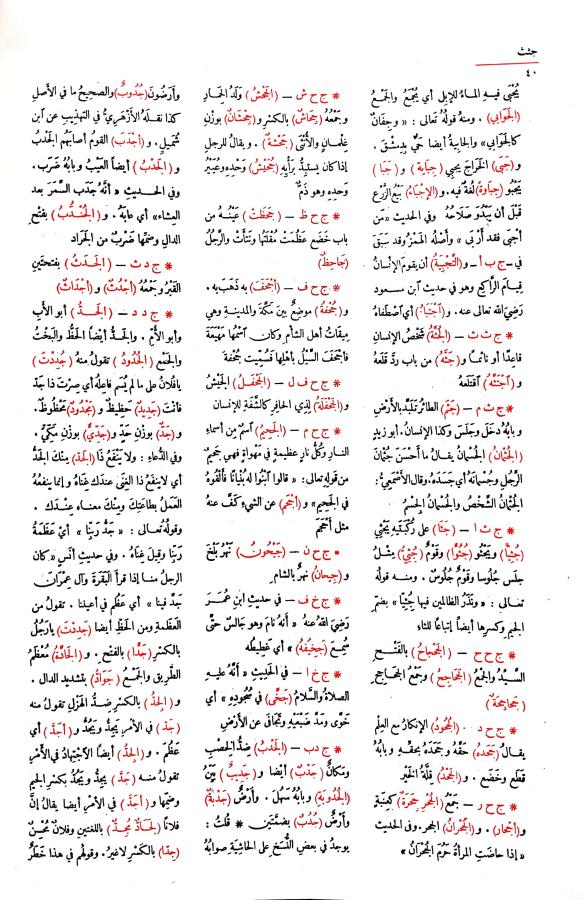 جثث
٤٠
يُجْبَى فيه الماءُ للإبل أي يُجْمَعُ والجَمْعُ
(الجَوابي) . ومنه قوله تعالى : « وجِفَانٍ
كالجَوابي » والجابيةُ أيضا حَيٌّ بدِمَشْقَ .
و(جَبَى) الخَرَاجَ يجبي (جِبَاية) و ( جَبَا )
يَجْبُو (جِبَاوةً) لغةٌ فيه. و(الإجْبَاءُ) بَيْعُ الزَّرْع
قَبْلَ أن يَبْدُوَ صَلَاحُهُ وفي الحديث « مَن
أجْبَى فقد أَرْبى » وأَصْلُه الهَمْزُ وقد سَبَقَ
في - ج ب أ - و(التَّجْبِيَةُ) أن يقومَ الإنْسانُ
قِيامَ الرَّاكِع وهو في حديث ابن مسعود
رَضيَ الله تعالى عنه . و(اجْتَبَاهُ) أي اصْطَفَاهُ
* ج ث ث – (الجُثَّةُ) شَخْصُ الإنسانِ
قاعدًا أو نائمًا و (جَثَّهُ) من باب ردّ قَلَعَهُ
و (اجْتَثَّهُ) اقْتلعَه
* ج ث م – (جَثَمَ) الطائرُ تَلَبَّدَ بالأَرْضِ
وبابُه دخَل وجَلَسَ وكذا الإنسانُ. أبو زيد
(الجُثْمَانُ) الجُسْمانُ يقال ما أَحْسَنَ جُثْمَانَ
الرَّجُلِ وجُسْمانَهُ أي جَسَدَه. وقال الأصْمَعِيُّ :
الجُثْمَانُ الشَّخْصُ والجُسْمانُ الجسْمُ
* ج ث ا – (جَثَا) على رُكْبَتَيْهِ يَجْثِي
(جُثِيًّا) ويَجْثُو (جُثُوًّا) وقَوْمٌ (جُثِيٌّ) مِثْلُ
جلَس جُلُوسا وقَوْمٌ جُلُوسٌ . ومنه قوله
تعالى : « ونَذَرُ الظالمين فيها جُثِيًّا » بضم
الجيم وكسرها أيضًا إتباعًا للثاء
* ج ح ج ح – (الجَحْجَاحُ) بالفَتْح
السَّيِّدُ والجَمْعُ (الجَحَاجِحُ) وجَمْعُ الجَحَاجِح
(جَحاجِحَةٌ)
* ج ح د – (الجُحُودُ) الإنكارُ مع العِلْمِ
يقالُ (جَحَدَهُ) حَقَّهُ وجَحَدَهُ بحقِّه وبابُه
قَطَعَ وخَضَعَ . و(الجَحْدُ) قِلَّةُ الخَيْر
* ج ح ر – جَمْعُ (الجُحْرِ جِحَرَةٌ) كعِنَبَة
و (أجْحارٌ) . و(الجُحْرانُ) الجحر. وفي الحديث
« إذا حاضَتِ المرأةُ حَرُمَ الجُحْرانُ »
* ج ح ش – (الجَحْشُ) وَلَدُ الحِمارِ
وجَمْعُهُ (جِحَاشٌ) بالكسْرِ و(جِحْشَانٌ) بوزْن
غِلْمانٍ والأُنْثَى (جَحْشَةٌ) . ويقالُ للرجل
إذا كان يستبِدُّ بَرَأْيهِ (جُحَيْشُ) وَحْدِه وعُيَيْرُ
وَحْدِه وهو ذَمٌّ
* ج ح ظ – (جَحَظَتْ) عَيْنُهُ من
باب خَضَع عَظُمَتْ مُقْلَتُها ونَتَأَتْ والرَّجُلُ
(جَاحِظٌ)
* ج ح ف – (أَجْحَفَ) به ذَهَبَ به.
و(جُحْفَةُ) موضعٌ بين مَكَّةَ والمدينةِ وهي
مِيقاتُ أهل الشأم وكان اسْمُها مَهْيَعَةَ
فأَجْحَفَ السَّيْلُ بأهْلِها فَسُمِّيت جُحْفةَ
* ج ح ف ل – (الجَحْفَلُ) الجَيْشُ
و (الجَحْفَلَةُ) لذِي الحافِر كالشَّفَةِ للإنسان
* ج ح م – (الجَحِيمُ) اسمٌ من أسماءِ
النار وكُلُّ نارٍ عظيمةٍ في مَهْواةٍ فهي جَحِيمٌ
من قوله تعالى: « قالوا ابْنُوا له بُنْيانًا فألْقُوهُ
في الجَحِيمِ » و (أَجْحَمَ) عن الشيءِ كَفَّ عنه
مثلُ أحْجَمَ
* ج ح ن – (جَيْحُونُ) نَهْرُ بَلْخَ
و (جيحانُ) نهرٌ بالشأم
* ج خ ف – في حديث ابنِ عُمَرَ
رَضِيَ الله عنه « أنه نامَ وهو جالسٌ حتَّى
سُمِعَ (جَخِيفُهُ) » أي غَطِيطُه
* ج خ ا – في الحديث « أنَّه عليه
الصلاةُ والسلامُ (جَخَّى) في سُجُودِهِ » أي
خَوَّى ومَدَّ ضَبْعَيْهِ وتَجَافَى عن الأَرْضِ
* ج دب – (الجَدْبُ) ضِدُّ الخِصْبِ
ومَكانٌ (جَدْبٌ) أيضًا و (جَدِيبٌ) بَيِّنُ
(الجُدُوبةِ) وبابُه سَهُلَ . وأَرضٌ (جَدْبَةٌ)
وأَرْضٌ (جُدُبٌ) بضمَّتَيْن * قُلْتُ :
يوجدُ في بعضِ النُّسَخِ على الحاشيةِ صوابُهُ
وأَرَضُونَ (جُدُوبٌ) والصحيحُ ما في الأَصْلِ
كذا نقلَهُ الأزْهَرِيُّ في التهذيبِ عن ابن
شُمَيلٍ . و (أَجْدَبَ) القومُ أصابَهُم الجَدْبُ
و (الجَدْبُ) أيضًا العَيْبُ وبابُه ضَرَب .
وفي الحديث « أنّه جَدَب السَّمَرَ بعد
العشاء » أي عابَهُ . و (الجُنْدُبُ) بفتْح
الدال وضمِّها ضَرْبٌ من الجَراد
* ج د ث – (الجَدَثُ) بفتحتَيْنِ
القَبْرُ وجمْعُه (أجْدُثٌ) و (أجْدَاثٌ)
* ج د د – (الجَدُّ) أبو الأَبِ
وأبو الأُمّ . والجَدُّ أيضًا الحَظُّ والبَخْتُ
والجَمْع (الجُدُودُ) تقولُ منهُ (جُدِدْتَ)
يا فُلَانُ على ما لم يُسَمَّ فاعلُه أي صِرْتَ ذا جَدٍّ
فأنتَ (جَدِيدٌ) حَظِيظٌ و (مَجْدُودٌ) مَحْظُوظٌ .
و (جَدٌّ) بوزن حَدٍّ و(جَدِّيٌّ) بوزْنِ مكِّيٍّ .
وفي الدُّعاءِ : ولا يَنْفَعُ ذا (الجَدِّ) مِنْكَ الجَدُّ
أي لا ينفَعُ ذا الغِنى عندك غِناهُ وإنما ينفعهُ
العملُ بطاعَتِك ومِنْكَ معناه عندك .
وقولُه تعالى : « جَدُّ رَبِّنا » أيْ عَظَمَةُ
رَبِّنا وقِيلَ غِنَاهُ . وفي حديث أنسٍ « كان
الرجلُ منا إذا قرأ البَقَرةَ وآل عِمْرَانَ
جَدَّ فينا » أي عَظُم في أعيننا . تقولُ من
العَظَمَةِ ومن الحَظِّ أيضا (جَدِدْتَ) يا رَجُلُ
بالكسْرِ (جَدًّا) بالفتْحِ . و (الجادَّةُ) مُعْظَمُ
الطَّريق والجَمْعُ (جَوَادُّ) بتشديد الدال .
و (الجِدُّ) بالكَسْرِ ضِدُّ الهَزْلِ تقولُ منه
(جَدَّ) في الأَمْرِ يَجِدُّ ويَجُدُّ و (أجَدَّ) أي
عَظُمَ . و (الجِدُّ) أيضًا الاجْتِهادُ في الأَمْرِ
تقولُ منه (جَدَّ) يجِدُّ ويَجُدُّ بكَسْرِ الجيم
وضمِّها و (أجَدَّ) في الأَمْرِ أيضا يقالُ إنَّ
فلانًا (لجَادٌّ مُجِدٌّ) باللغتَينِ وفلانٌ مُحْسنٌ
(جِدًّا) بالكسْرِ لا غيرُ. وقولُهم في هذا خَطَرٌ